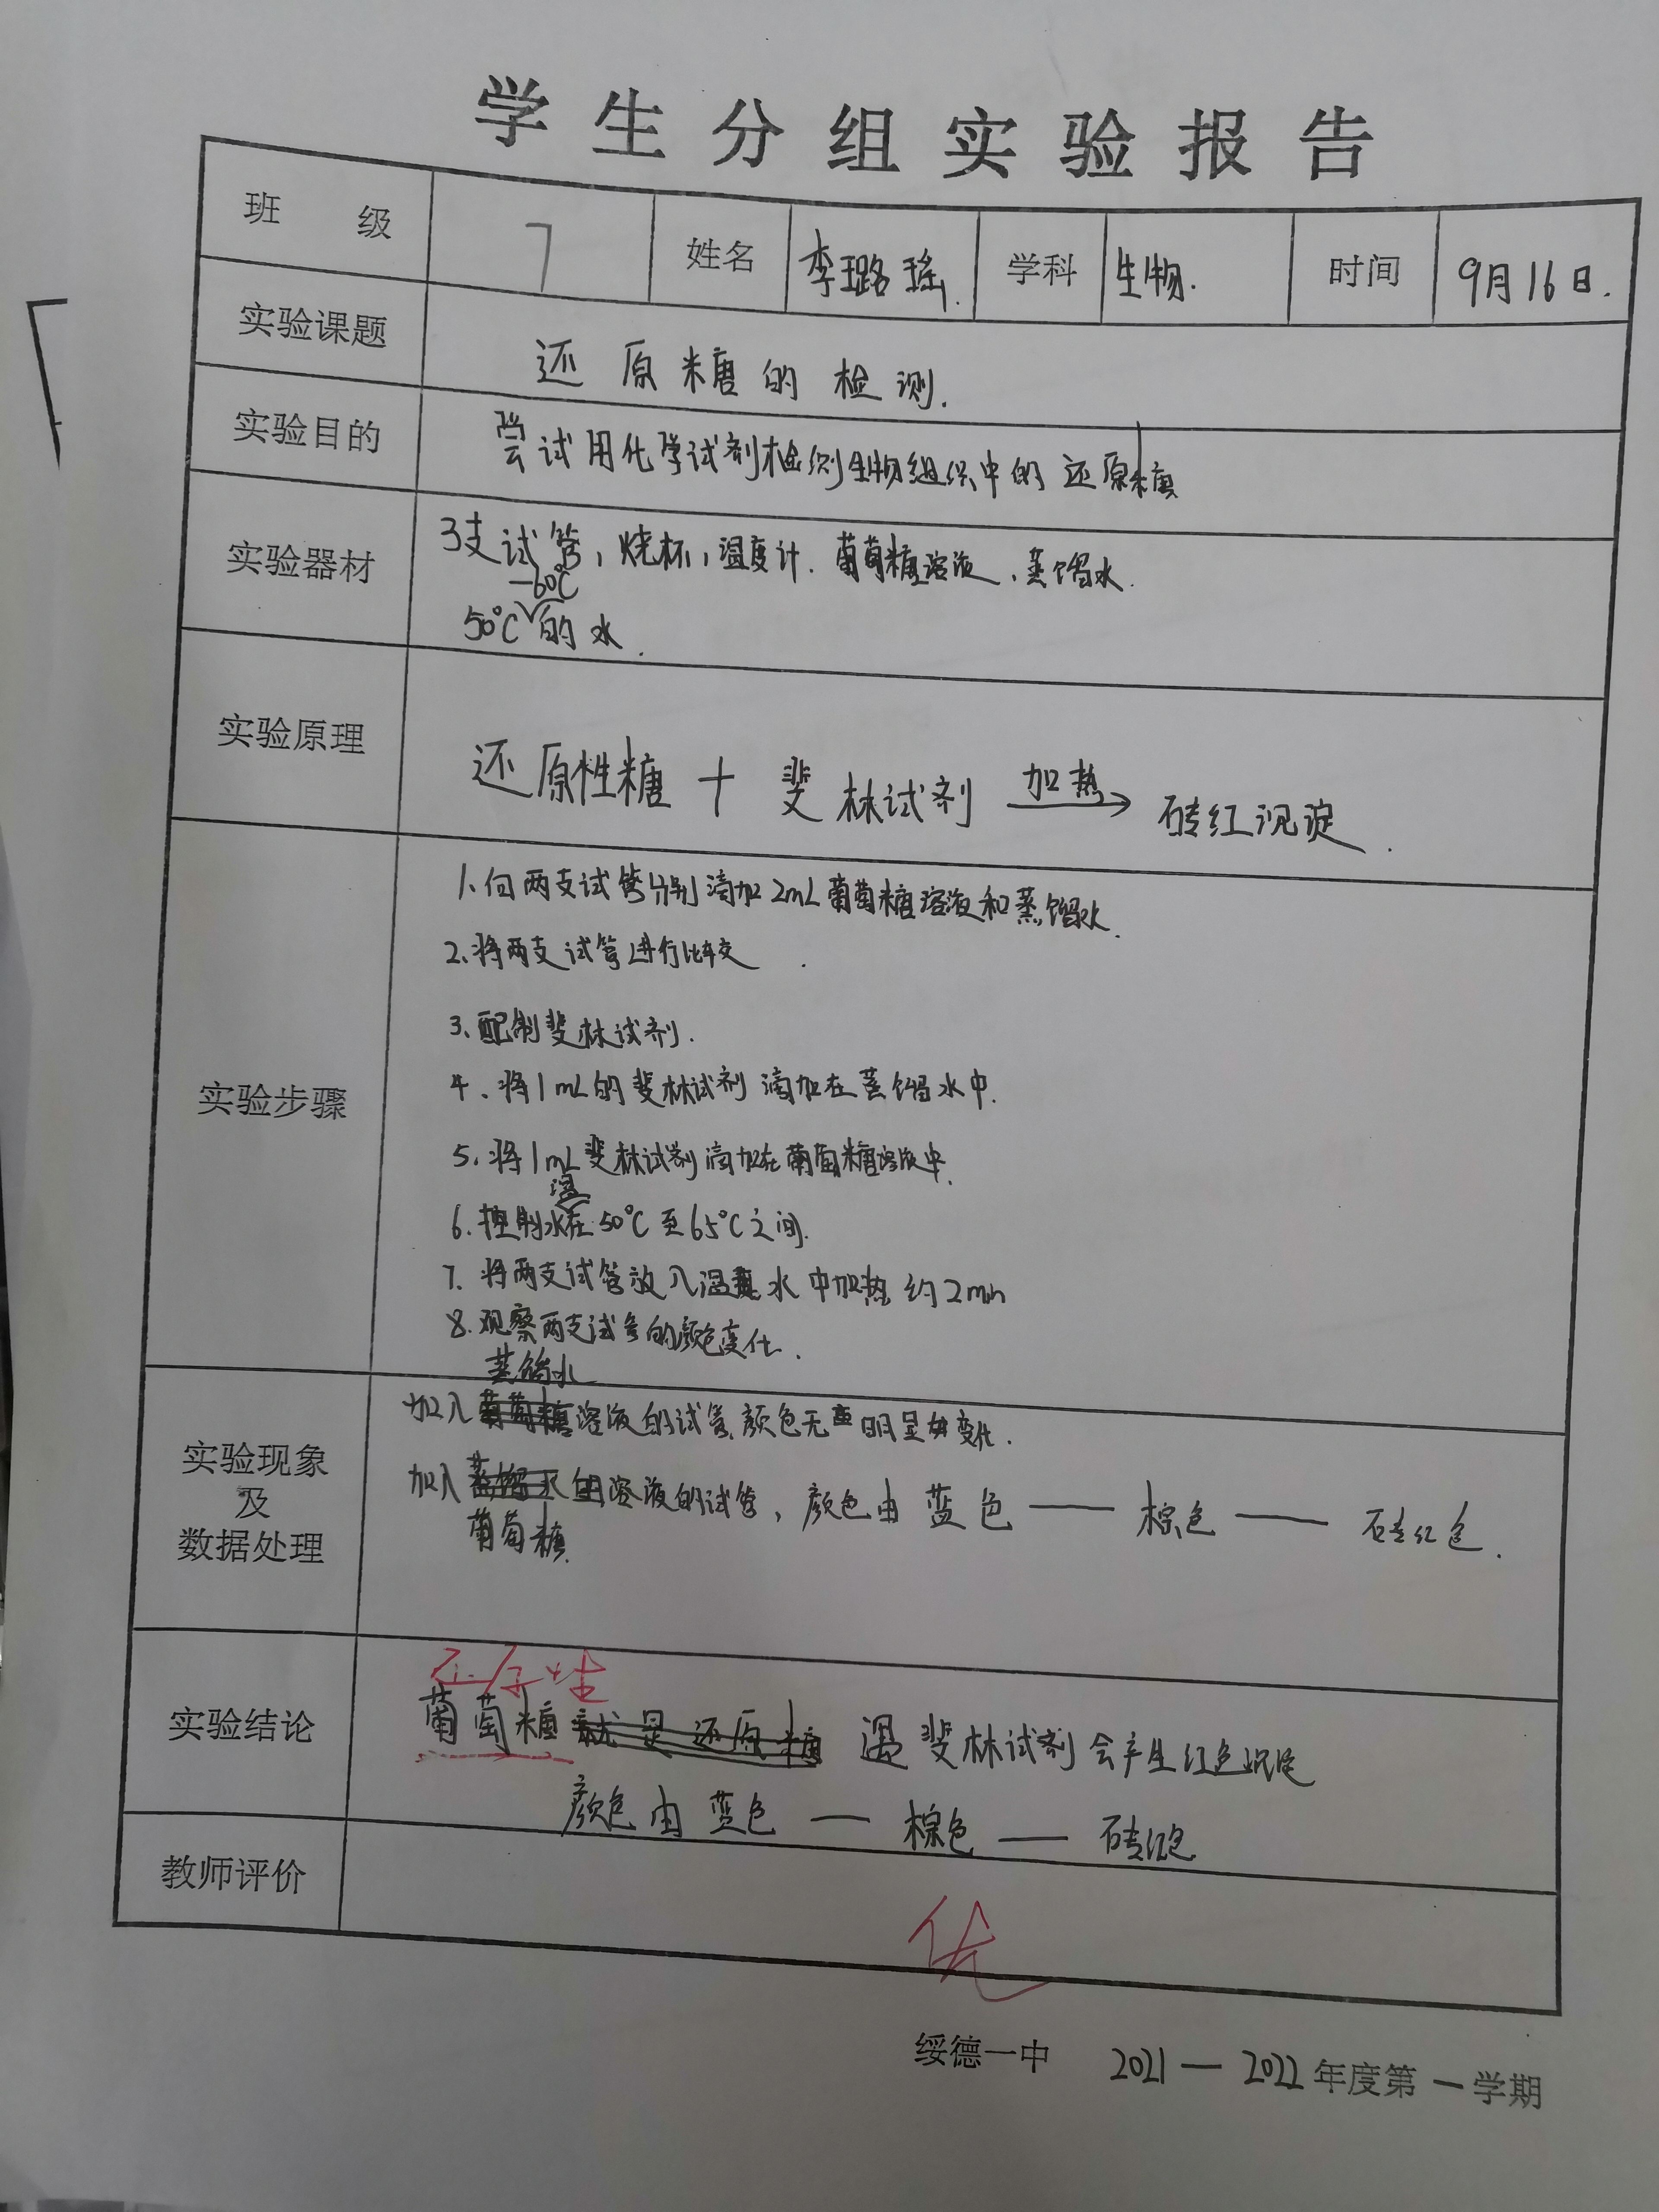 学生分组实验报告
班 级 7 姓名 李璐瑶. 学科 生物. 时间 9月16日.
实验课题 还原糖的检测.
实验目的 尝试用化学试剂检测生物组织中的还原糖
实验器材 3支试管,烧杯,温度计.葡萄糖溶液、蒸馏水.
-60℃
50℃的水.
实验原理 还原性糖 + 斐林试剂 加热→ 砖红沉淀.
实验步骤
1、向两支试管分别滴加2mL葡萄糖溶液和蒸馏水.
2、将两支试管进行比较.
3、配制斐林试剂.
4、将1mL的斐林试剂滴加在蒸馏水中.
5、将1mL斐林试剂滴加在葡萄糖溶液中.
温
6.控制水在50℃至65℃之间.
7.将两支试管放入温水中加热约2min
8.观察两支试管的颜色变化.
蒸馏水
实验现象
及
数据处理
加入葡萄糖溶液的试管颜色无明显变化.
加入蒸馏水溶液的试管,颜色由蓝色——棕色——砖红色.
葡萄糖
还原性
实验结论 葡萄糖就是还原糖 遇斐林试剂会产生红色沉淀
颜色由蓝色—棕色—砖红色
教师评价 优
绥德一中 2021—2022年度第一学期